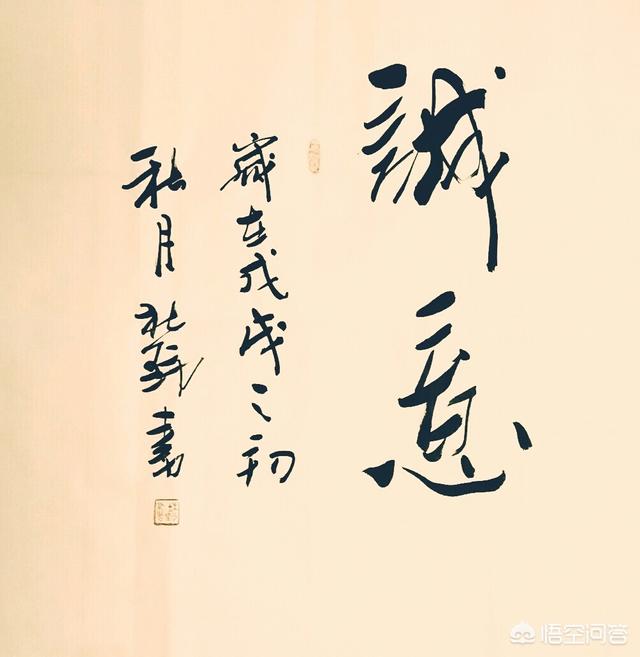 誠意
歲在戊戌之初
秋月書
悟空问答